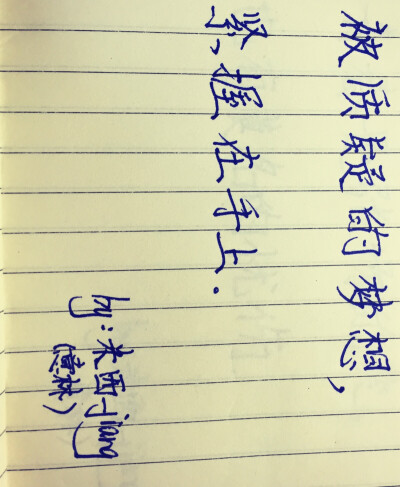 被质疑的梦想，
紧握在手上．
by：米西-jiang
（意林）